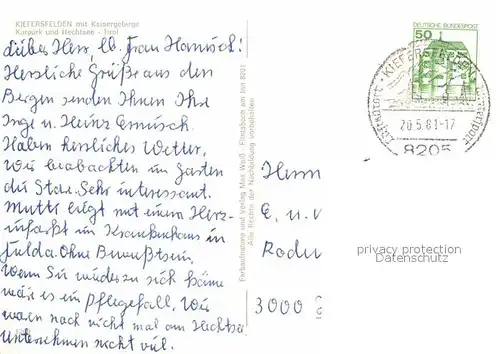 KIEFERSFELDEN mit Kaisergebirge
Kurpark und Hechtsee - Tirol
Lieber Herr, lb. Frau Hanisch!
Herzliche Grüße aus den
Bergen senden Ihnen Ihre
Inge u. Heinz
Haben herrliches Wetter,
Wir beobachten im Garten
die Stare. Sehr interessant.
Mutti liegt mit einem Herz-
infarkt im Krankenhaus in
Fulda. Ohne Bewußtsein,
Wenn Sie wieder zu sich käme
wär es ein Pflegefall. Wir
waren noch nicht mal am Hechtsee
Unternehmen nicht viel.
Farbaufnahme und Verlag Max Weiß · Flintsbach am Inn 8201
Alle Rechte der Nachbildung vorbehalten
DEUTSCHE BUNDESPOST
50
KIEFERSFELDEN
20.5.81-17
8205
Herrn
E. u.
Rodu
3000
privacy protection
Datenschutz